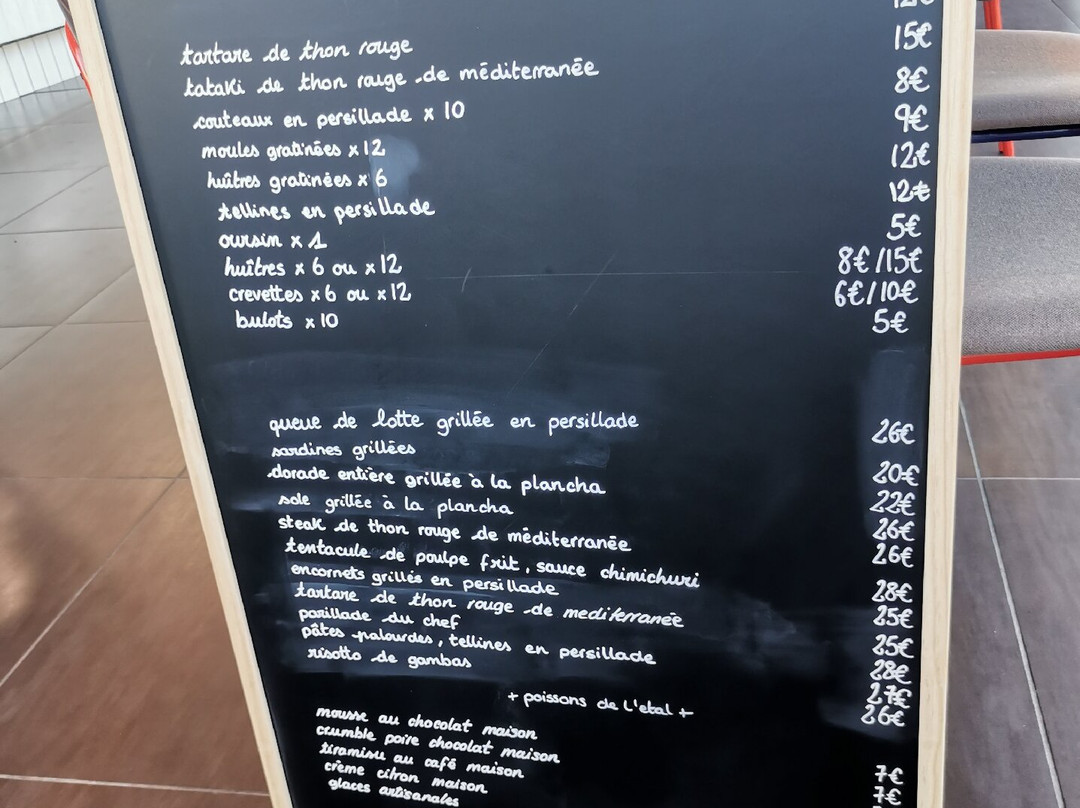 tartare de thon rouge 12€
tataki de thon rouge de méditerranée 15€
couteaux en persillade x 10 8€
moules gratinées x 12 9€
huîtres gratinées x 6 12€
tellines en persillade 12€
oursin x 1 5€
huîtres x 6 ou x 12 8€/15€
crevettes x 6 ou x 12 6€/10€
bulots x 10 5€
queue de lotte grillée en persillade 26€
sardines grillées 20€
dorade entière grillée à la plancha 22€
sole grillée à la plancha 26€
steak de thon rouge de méditerranée 26€
tentacule de poulpe frit, sauce chimichuri 28€
encornets grillés en persillade 25€
tartare de thon rouge de mediterranée 25€
parillade du chef 28€
pâtes palourdes, tellines en persillade 27€
risotto de gambas 26€
+ poissons de l'etal +
mousse au chocolat maison 7€
crumble poire chocolat maison 7€
tiramisu au café maison
crème citron maison
glaces artisanales